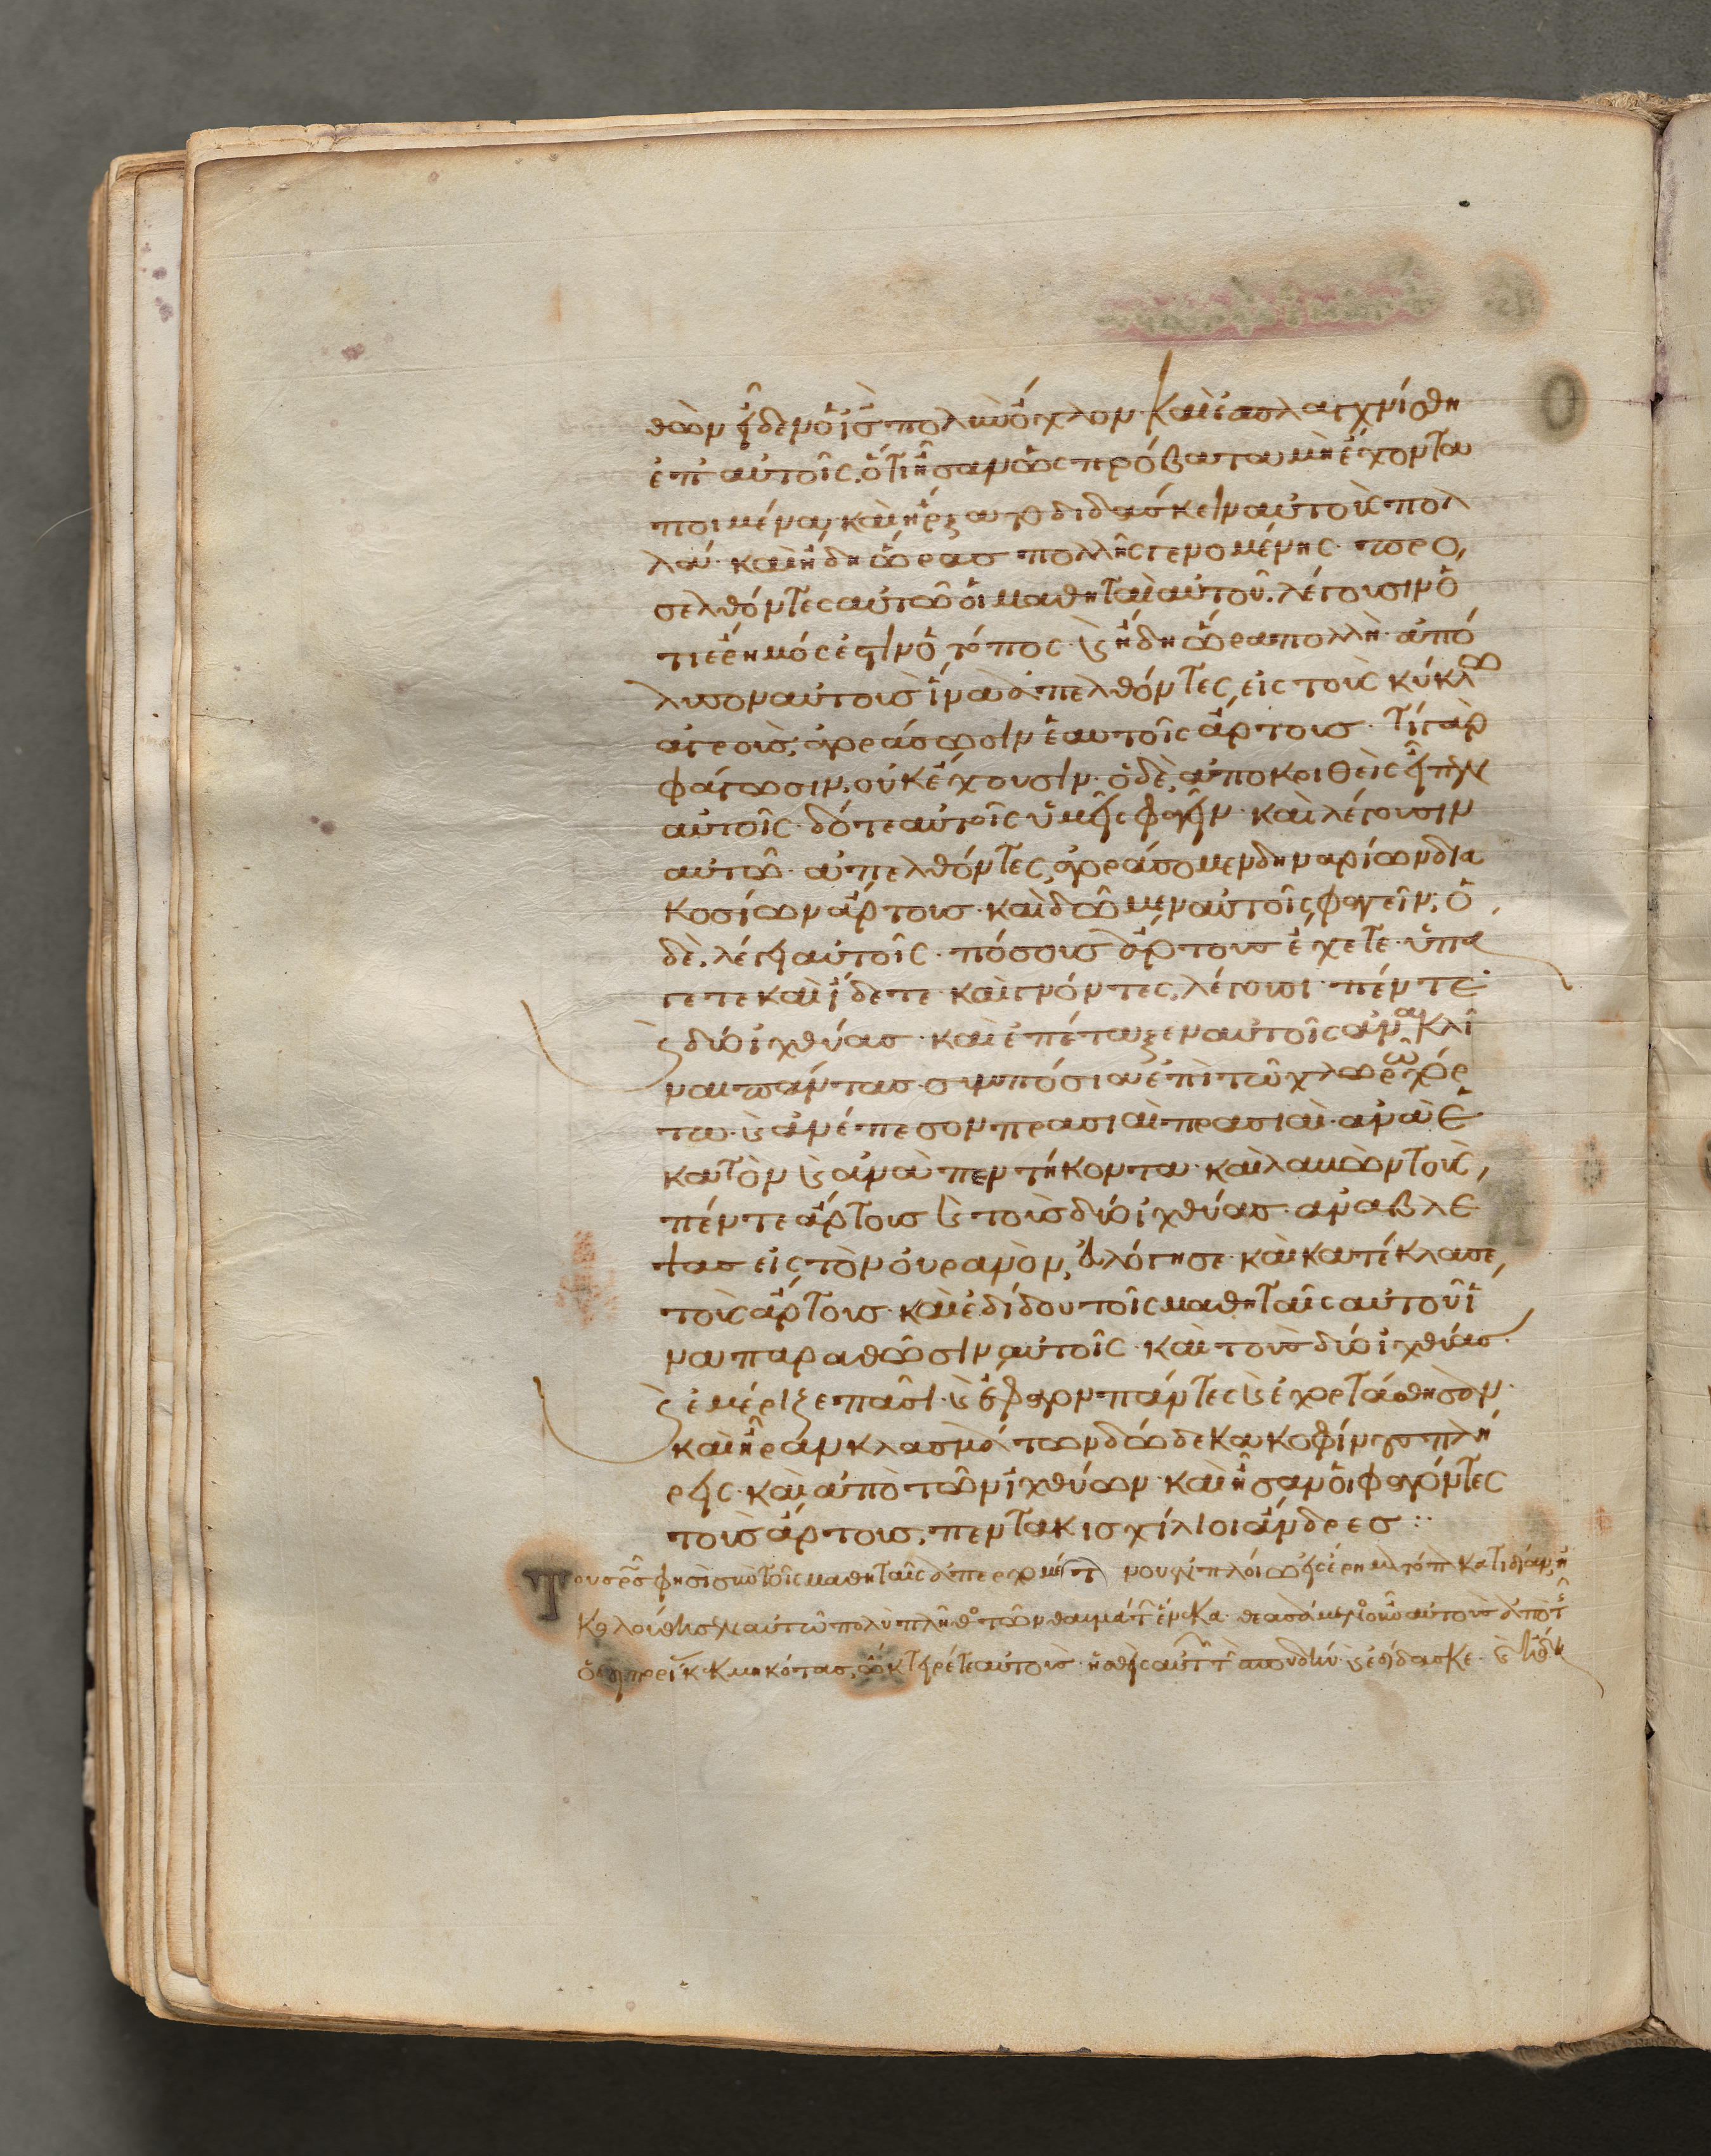 θὼν εἶδεν ὁ ις πολὺν ὄχλον· καὶ ἐσπλαγχνίσθη
ἐπ' αὐτοῖς. ὅτι ἦσαν ὡς πρόβατα μὴ ἔχοντα
ποιμένα, καὶ ἤρξατο διδάσκειν αὐτοὺς πολ
λά· καὶ ἤδη ὥρας πολλῆς γενομένης· προ,
σελθόντες αὐτῶ οἱ μαθηταὶ αὐτοῦ. λέγουσιν ὅ
τι ἔρημός ἐστιν ὁ τόπος· καὶ ἤδη ὥρα πολλὴ· ἀπό
λυσον αὐτοὺς ἵνα ἀπελθόντες, εἰς τοὺς κύκλω
ἀγροὺς, ἀγοράσωσιν ἑαυτοῖς ἄρτους· τί γὰρ
φάγωσιν, οὐκ ἔχουσιν· ὁ δὲ, ἀποκριθεὶς εἶπεν
αὐτοῖς· δότε αὐτοῖς ὑμεῖς φαγεῖν· καὶ λέγουσιν
αὐτῶ· ἀπελθόντες, ἀγοράσομεν δηναρίων δια
κοσίων ἄρτους· καὶ δῶμεν αὐτοῖς φαγεῖν; ὁ
δὲ. λέγει αὐτοῖς· πόσους ἄρτους ἔχετε· ὑπά
γετε καὶ ἴδετε· καὶ γνόντες, λέγουσι· πέντε·
καὶ δύο ἰχθύας· καὶ ἐπέταξεν αὐτοῖς ἀνακλῖ
ναι πάντας· συμπόσια ἐπὶ τῶ χλωρῶ χόρ
τω· καὶ ἀνέπεσον πρασιαὶ πρασιαὶ· ἀνὰ ἑ
κατὸν καὶ ἀνὰ πεντήκοντα· καὶ λαβὼν τοὺς,
πέντε ἄρτους καὶ τοὺς δύο ἰχθύας· ἀναβλέ
ψας εἰς τὸν οὐρανὸν, εὐλόγησε· καὶ κατέκλασε,
τοὺς ἄρτους· καὶ ἐδίδου τοῖς μαθηταῖς αὐτοῦ ἵ
να παραθῶσιν αὐτοῖς· καὶ τοὺς δύο ἰχθύας·
καὶ ἐμέριξε πᾶσι· καὶ ἔφαγον πάντες καὶ ἐχορτάσθησαν·
καὶ ἦραν κλασμάτων δώδεκα κοφίνους πλή
ρεις· καὶ ἀπὸ τῶν ἰχθύων· καὶ ἦσαν οἱ φαγόντες
τοὺς ἄρτους, πεντακισχίλιοι ἄνδρες :·
Τοῦ σρς φησὶ σὺν τοῖς μαθηταῖς